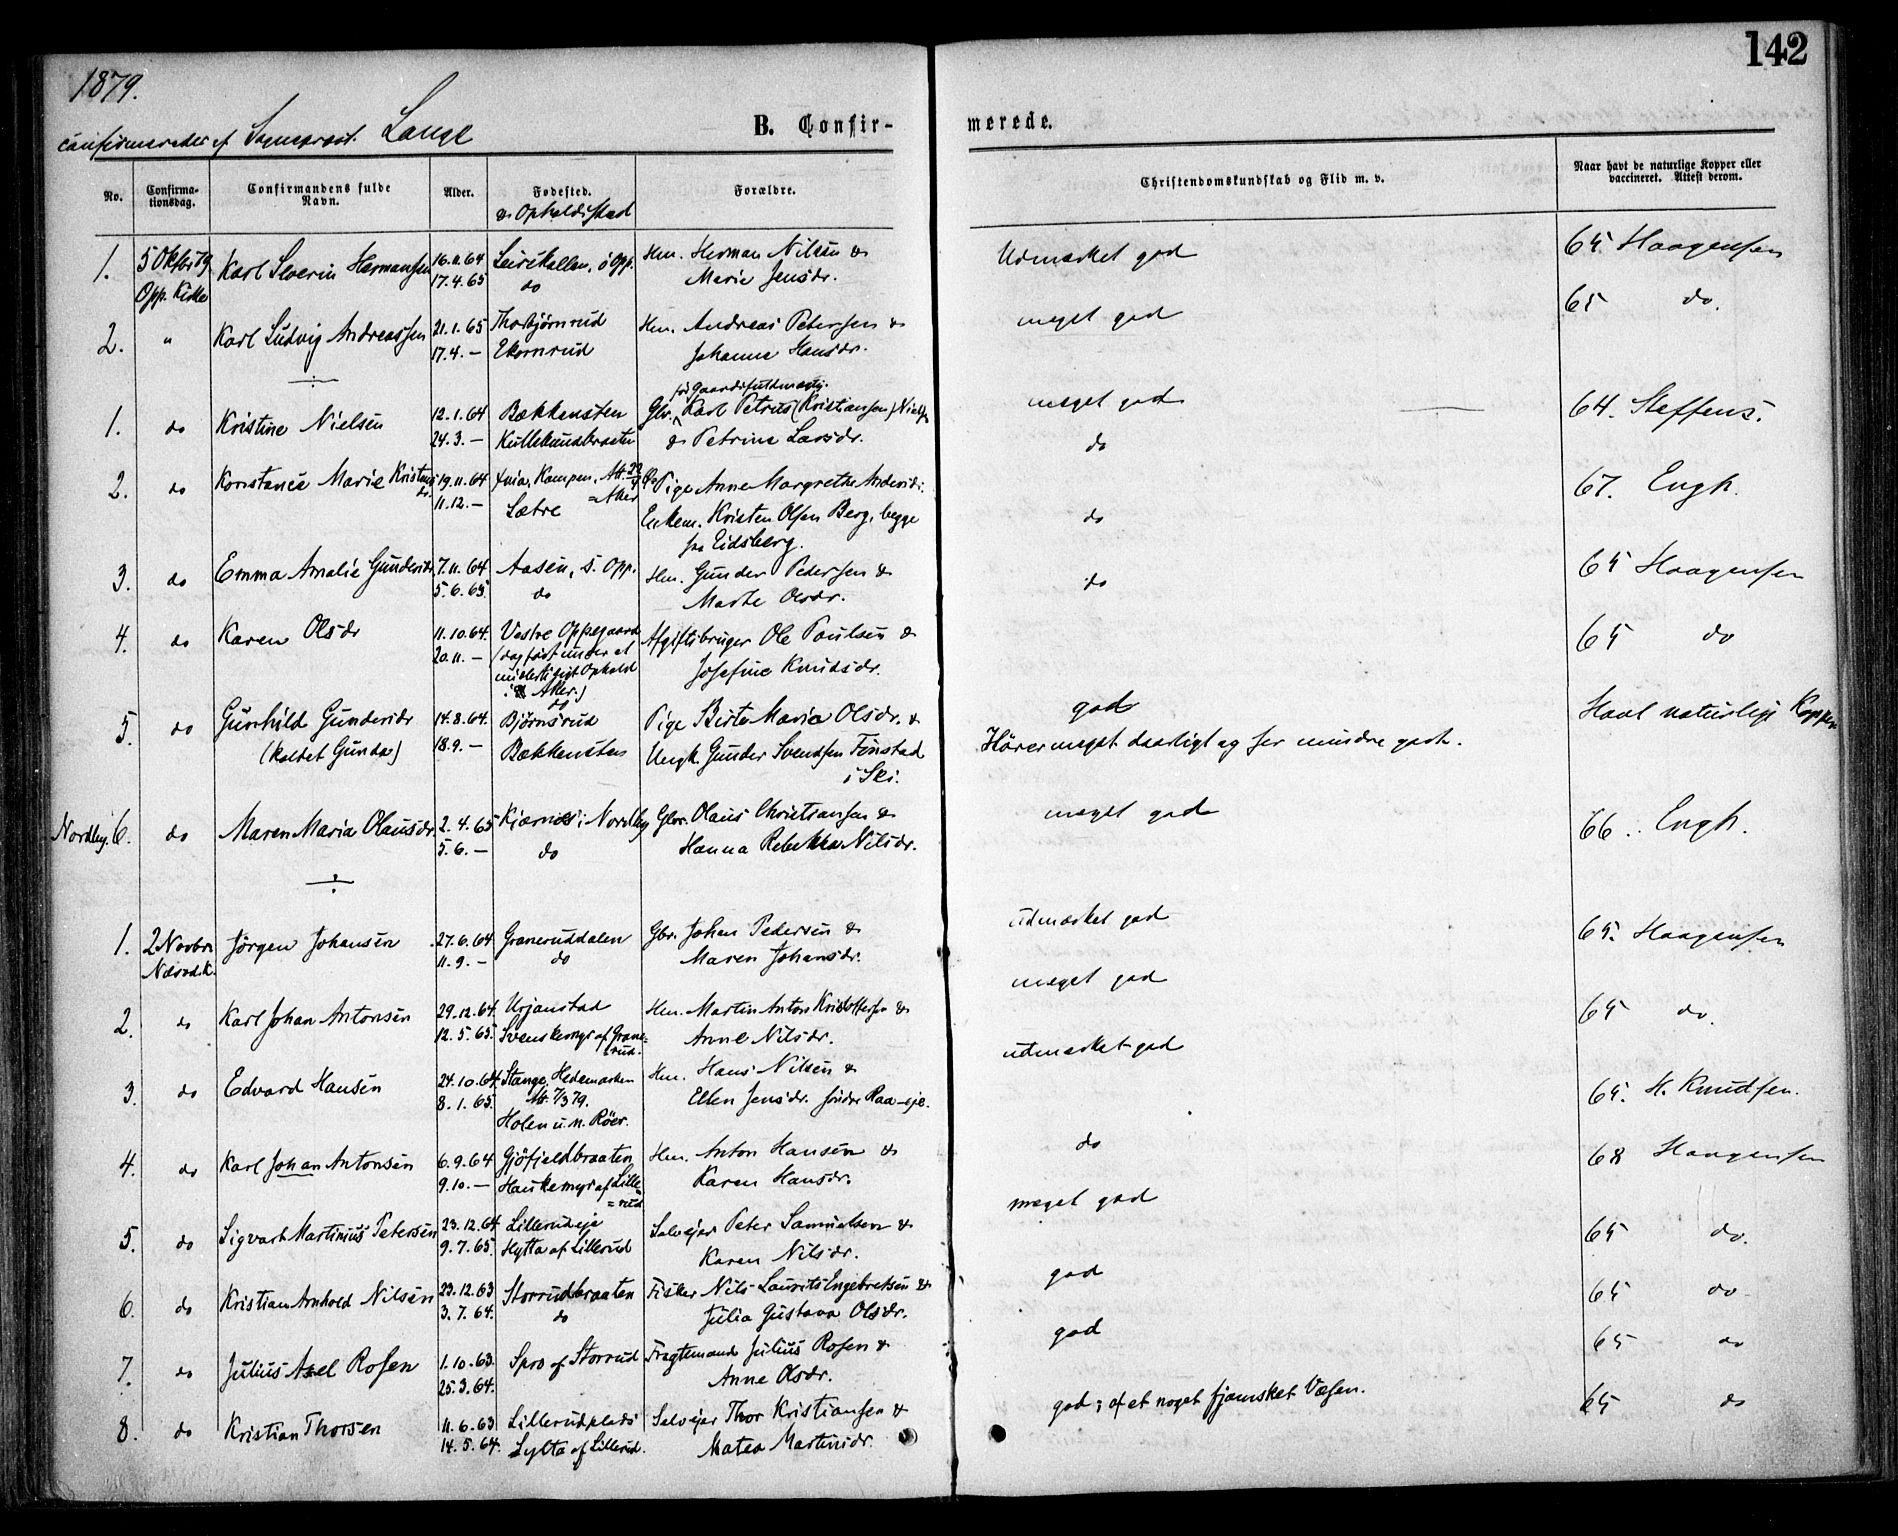 142
1879.
confirmerede af Sognepræst Lange
B. Confirmerede.
No. | Confirmationsdag. | Confirmandens fulde Navn. | Alder. | Fødested. & Opholdssted | Forældre. | Christendomskundskab og Flid m. v. | Naar havt de naturlige Kopper eller vaccineret. Attest derom.
1. | 5 Oktbr 79 | Karl Severin Hermansen | 16.11.64 | Leirskallen, s. Opp. | Hm. Herman Nilsen & | Udmærket god | 65 Haagensen
Opp. Kirke | 17.4.65 | do | Marie Jensdr.
2. | " | Karl Ludvig Andreassen | 21.1.65 | Thorbjørnrud | Hm. Andreas Petersen & | meget god | 65 do.
17.4. — | Ekornrud | Johanne Hansdr.
1. | do | Kristine Nielsen | 12.1.64 | Bækkensten | Gbr. Karl Petrus (Kristiansen) | meget god | 64. Steffens.
24.3. — | & Petrine Larsdr.
2. | do | Konstance Marie | 19.11.64 | Xnia, Kampen, | Pige Anne Margrethe | do | 67. Engh.
11.12. — | Sætre = Aker | Enkem. Kristen Olsen Berg, begge
fra Eidsberg.
3. | do | Emma Amalie Gundersdr | 7.11.64 | Aasen, s. Opp. | Hm. Gunder Pedersen & | do | 65 Haagensen
5.6.65. | do | Marte Olsdr.
4. | do | Karen Olsdr | 11.10.64. | Vestre Oppegaard | Afgiftsbruger Ole Poulsen & | do | 65 do
20.11. — | midlertidigt Ophold | Josefine Knudsdr.
i Aker.)
5. | do | Gunhild Gundersdr | 14.8.64. | Bjørnsrud | Pige Berte Maria Olsdr. & | god | Havt naturlige Kopper
(kaldet Gunda) | 18.9. — | Bækkensten | Ungk. Gunder Svendsen Finstad | Hører meget daarligt og ser mindre godt.
i Ski.
Nordby. 6. | do | Maren Maria Olausdr | 2.4.65 | Kjærnes i Nordby | Gbr. Olaus Christiansen & | meget god | 66. Engh.
5.6. — | do | Hanna Rebekka Nilsdr.
1. | 2 Novbr | Jörgen Johansen | 27.6.64 | Graneruddalen | Gbr. Johan Pedersen & | udmærket god | 65. Haagensen
Næsod. K. | 11.9. — | do | Maren Johansdr.
2. | do | Karl Johan Antonsen | 29.12.64 | Urjanstad | Hm. Martin Anton Kristoffersen & | meget god | 65 do.
12.5.65. | Svenskemyr af Grane=rud. | Anne Nilsdr.
3. | do | Edvard Hansen | 24.10.64 | Stange, Hedemarken | Hm. Hans Nilsen & | udmærket god | 65. H. Knudsen.
8.1.65. | Att. 7/3 79. | Ellen Jensdr. söndre Raa-eje.
Holen u. n. Röer.
4. | do | Karl Johan Antonsen | 6.9.64 | Gjöfjeldbraaten | Hm. Anton Hansen & | do | 68 Haagensen
9.10. — | Haukemyr af Lille=rud | Karen Hansdr.
5. | do | Sigvart Martinius Petersen | 23.12.64 | Lillerudeje | Selvejer Peter Samuelsen & | meget god | 65 do.
9.7.65. | Hytta af Lillerud | Karen Nilsdr.
6. | do | Kristian Arnhold Nilsen | 23.12.63 | Storrudbraaten | Fisker Nils Laurits Engebretsen & | god | 65 do
3.7.64. | do | Julia Gustava Olsdr.
7. | do | Julius Axel Rosen | 1.10.63. | Spro af Storrud | Fragtemand Julius Rosen & | god | 65 do
25.3.64. | Anne Olsdr.
8. | do | Kristian Thorsen | 11.6.63 | Lillerudplads | Selvejer Thor Kristiansen & | god; af et noget fjamsket Væsen. | 65 do
14.5.64. | Sylta af Lillerud. | Matea Martinsdr.